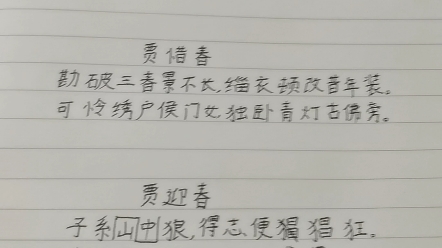 贾惜春
勘破三春景不长,缁衣顿改昔年装。
可怜绣户侯门女,独卧青灯古佛旁。
贾迎春
子系山中狼,得志便猖狂。